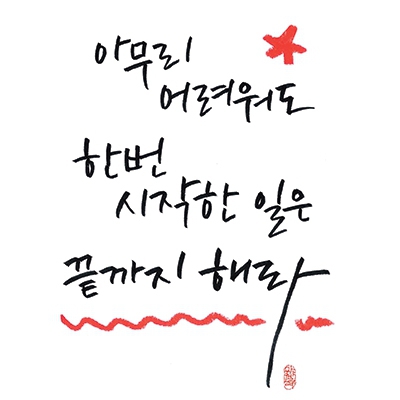 아무리
어려워도
한번
시작한 일은
끝까지 해라